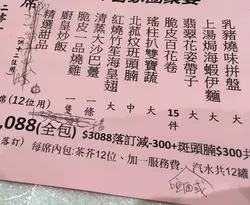 乳豬燒味拼盤
上湯焗海蝦伊麵
翡翠花姿帶子
脆皮百花卷
瑤柱扒雙寶蔬
北菰炆斑頭腩
紅燒竹笙海皇翅
清蒸大沙巴躉
脆皮一品燒雞
廚皇炒飯
精選甜品
席(12位用)
一隻
一條
大
中
大
大
15件
中
大
,088(全包)
$3088落訂減-300+斑頭腩$300
落訂)
每席內包:茶芥12位、加一服務費、汽水共12罐